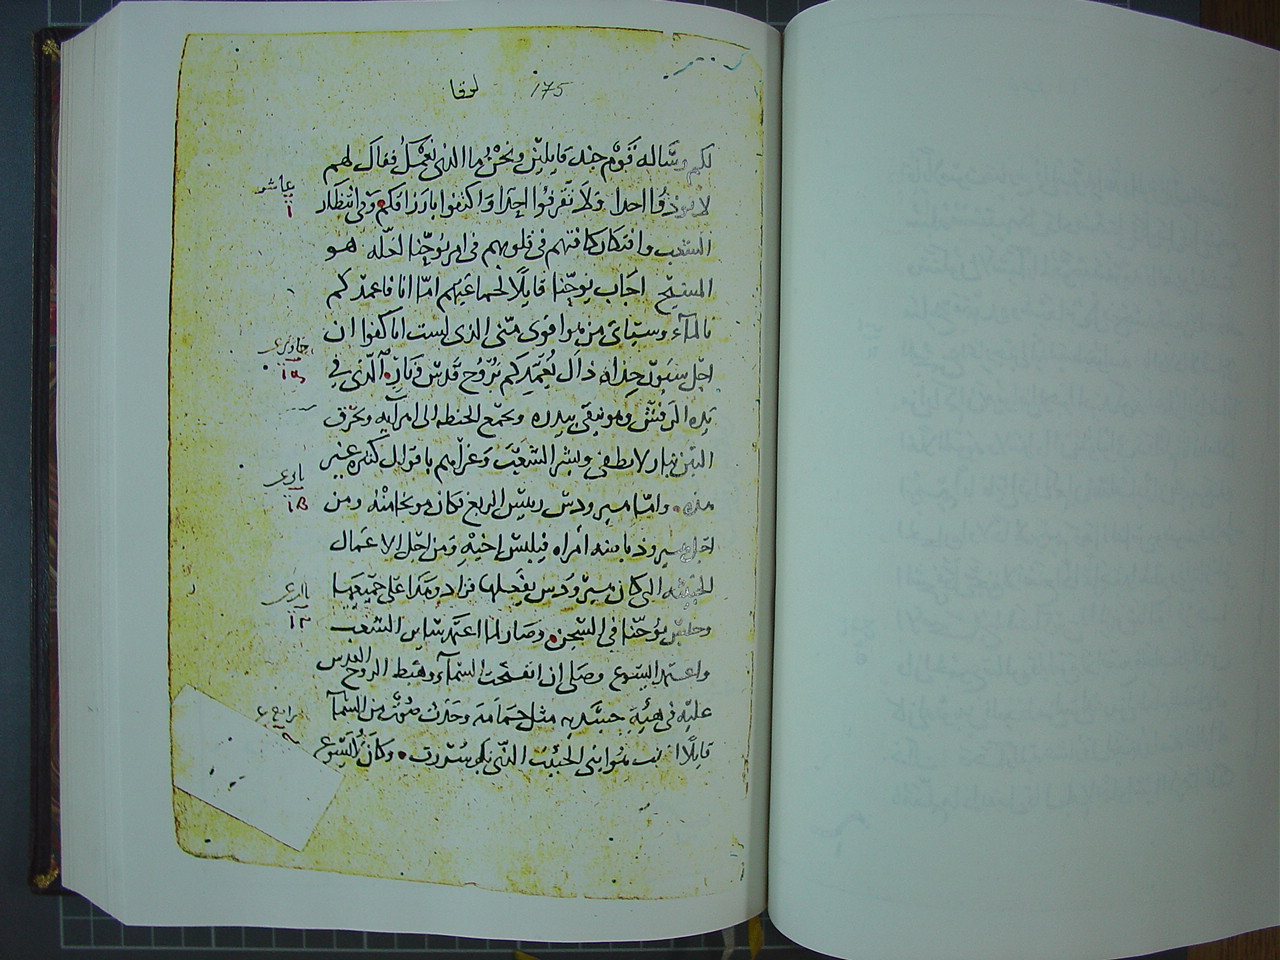 لوقا 175
لكم وساله قوم جند قايلين ونحن ما الذي نعمل فقال لهم
عاشر
لا توذوا احدا ولا تقرفوا احدا واكتفوا بارزاقكم وفي انتظار
الشعب وافتكار كافتهم في قلوبهم في امر يوحنا لعله هو
المسيح اجاب يوحنا قايلا لجماعتهم اما انا فاعمدكم
بالمآء وسياتي من هوا قوي مني الذي لست اناكفوا ان
احل سيور حذاه ذاك يعمدكم بروح قدس ونار الذي في
يده الرفش وهو ينقي بيدره ويجمع الحنطه الى اهرآيه ويحرق
التبن بنار لا يطفى وبشر الشعب وعزاهم باقوال كثيره غير
هذه واما هيرودس رييس الربع فكان يوحنا
اجل هيروديا امراه فيلبس اخيه ومن اجل الاعمال
الخبيثه التي كان هيرودس يفعلها فزاد وهذا على جميعها
وحبس يوحنا في السجن وصار لما اعتمد ساير الشعب
واعتمد اليسوع وصلى ان انفتحت السمآء وهبط الروح القدس
عليه في هيئة مثل حمامة وحدث صوت من السمآ
قايلا انت هوا ابني الحبيب الذي بك سررت وكان اليسوع